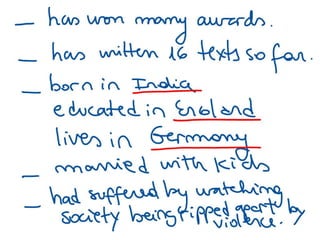 – has won many awards.
– has written 16 texts so far.
– born in India
educated in England
lives in Germany
– married with kids
– had suffered by watching
society being ripped apart by
violence.